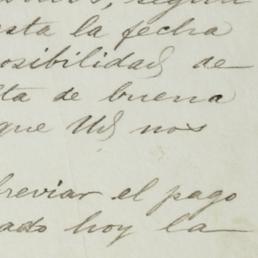 esta la fecha
osibilidad de
lta de buena
que Ud nos
breviar el pago
ado hoy la